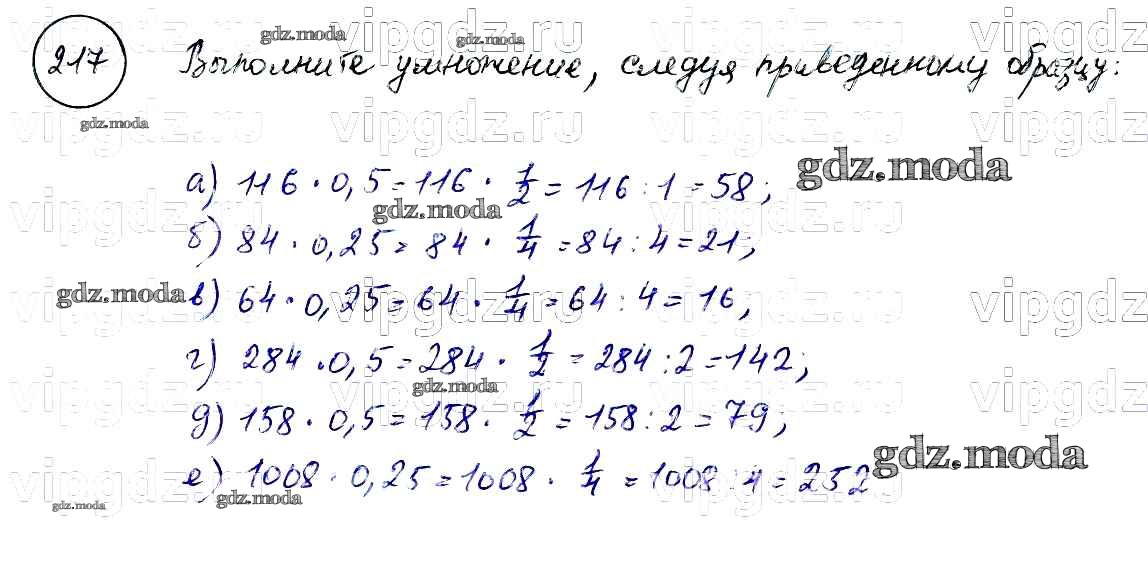 217 Выполните умножение, следуя приведенному образцу:
а) 116 · 0,5 = 116 · 1/2 = 116 : 1 = 58;
б) 84 · 0,25 = 84 · 1/4 = 84 : 4 = 21;
в) 64 · 0,25 = 64 · 1/4 = 64 : 4 = 16,
г) 284 · 0,5 = 284 · 1/2 = 284 : 2 = 142;
д) 158 · 0,5 = 158 · 1/2 = 158 : 2 = 79;
е) 1008 · 0,25 = 1008 · 1/4 = 1008 : 4 = 252
gdz.moda
vipgdz.ru